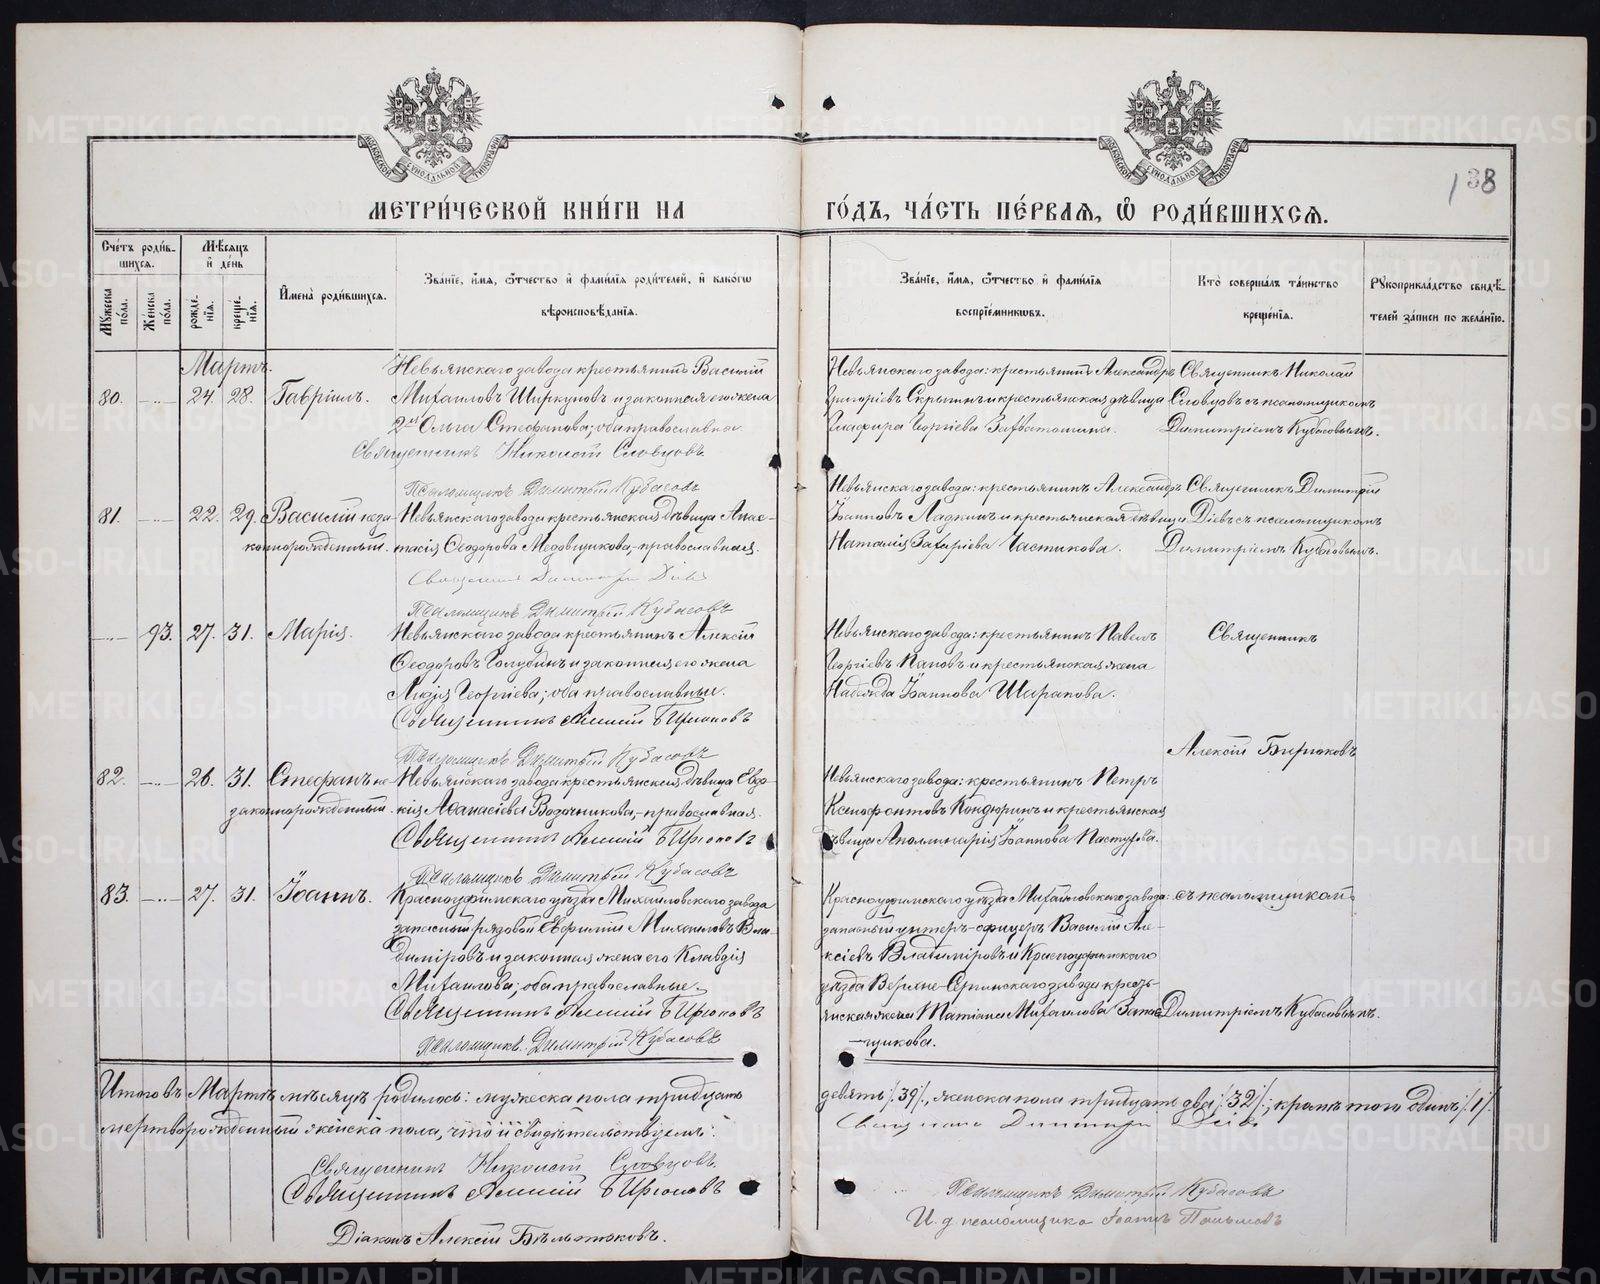 МЕТРИ́ЧЕСКОЙ КНИ́ГИ НА
ГО́ДЪ, ЧА́СТЬ ПЕ́РВАѦ, Ѽ РОДИ́ВШИХСѦ.
138
Сче́тъ роди́в-
шихсѧ.
Мѣ́сѧцъ
и҆ де́нь
Мꙋ́жеска по́ла.
Же́нска по́ла.
рожде́-
нїѧ.
креще́-
нїѧ.
И҆мена̀ роди́вшихсѧ.
Зва́нїе, и҆́мѧ, ѻ҆́тчество и҆ фами́лїѧ роди́телей, и҆ како́гѡ
вѣроисповѣ́данїѧ.
Зва́нїе, и҆́мѧ, ѻ҆́тчество и҆ фами́лїѧ
воспрїе́мникѡвъ.
Кто̀ соверша́лъ та́инство
креще́нїѧ.
Рꙋкоприкла́дство свидѣ́-
телей за́писи по жела́нїю.
Мартъ.
80. 24. 28. Гавріилъ.
Невьянскаго завода крестьянинъ Василій
Михаиловъ Ширкуновъ и законная его жена
2я Ольга Стефанова; оба православные
Священникъ Николай Словцовъ
Псаломщикъ Димитрій Кубасовъ
Невьянскаго завода: крестьянинъ Александръ
Григоріевъ Скрыпинъ и крестьянская дѣвица
Глафира Георгіева Захватошина.
Священникъ Николай
Словцовъ съ псаломщикомъ
Димитріемъ Кубасовымъ.
81. 22. 29. Василій неза-
коннорожденный.
Невьянскаго завода крестьянская дѣвица Анас-
тасія Ѳеодорова Медовщикова, православная.
Священникъ Димитрій Діевъ
Псаломщикъ Димитрій Кубасовъ
Невьянскаго завода: крестьянинъ Александръ
Іоанновъ Ладкинъ и крестьянская дѣвица
Наталія Захаріева Частикова.
Священникъ Димитрій
Діевъ съ псаломщикомъ
Димитріемъ Кубасовымъ.
93. 27. 31. Марія.
Невьянскаго завода крестьянинъ Алексій
Ѳеодоровъ Голубинъ и законная его жена
Лидія Георгіева; оба православные.
Священникъ Алексій Бирюковъ
Псаломщикъ Димитрій Кубасовъ
Невьянскаго завода: крестьянинъ Павелъ
Георгіевъ Паповъ и крестьянская жена
Надежда Іоаннова Шаракова.
Священникъ
Алексій Бирюковъ
82. 26. 31. Стефанъ не-
законнорожденный.
Невьянскаго завода крестьянская дѣвица Евдо-
кія Аѳанасіева Водочникова, православная.
Священникъ Алексій Бирюковъ
Псаломщикъ Димитрій Кубасовъ
Невьянскаго завода: крестьянинъ Петръ
Ксенофонтовъ Кондюринъ и крестьянская
дѣвица Аполлинарія Іоаннова Пастухова.
83. 27. 31. Іоаннъ.
Красноуфимскаго уѣзда Михайловскаго завода
запасный рядовой Евфимій Михаиловъ Вла-
диміровъ и законная жена его Клавдія
Михаилова; оба православные.
Священникъ Алексій Бирюковъ
Псаломщикъ Димитрій Кубасовъ
Красноуфимскаго уѣзда Михайловскаго завода:
запасный унтеръ-офицеръ Василій Але-
ксіевъ Владиміровъ и Красноуфимскаго
уѣзда Верхне-Сергинскаго завода кресть-
янская жена Татіана Михаилова Запа-
щикова.
съ псаломщикомъ
Димитріемъ Кубасовымъ.
Итого въ Мартѣ мѣсяцѣ родилось: мужеска пола тридцать
девять /.39/., женска пола тридцать два /.32/.; кромѣ того одинъ /.1/.
мертворожденный женска пола, что и свидѣтельствуемъ:
Священникъ Димитрій Діевъ
Священникъ Николай Словцовъ.
Священникъ Алексій Бирюковъ
Діаконъ Алексій Бѣльтюковъ.
Псаломщикъ Димитрій Кубасовъ
И. д. псаломщика Іоаннъ
METRIKI.GASO-URAL.RU